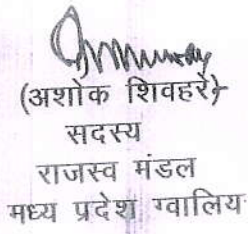 (अशोक शिवहरे)
सदस्य
राजस्व मंडल
मध्य प्रदेश ग्वालिय